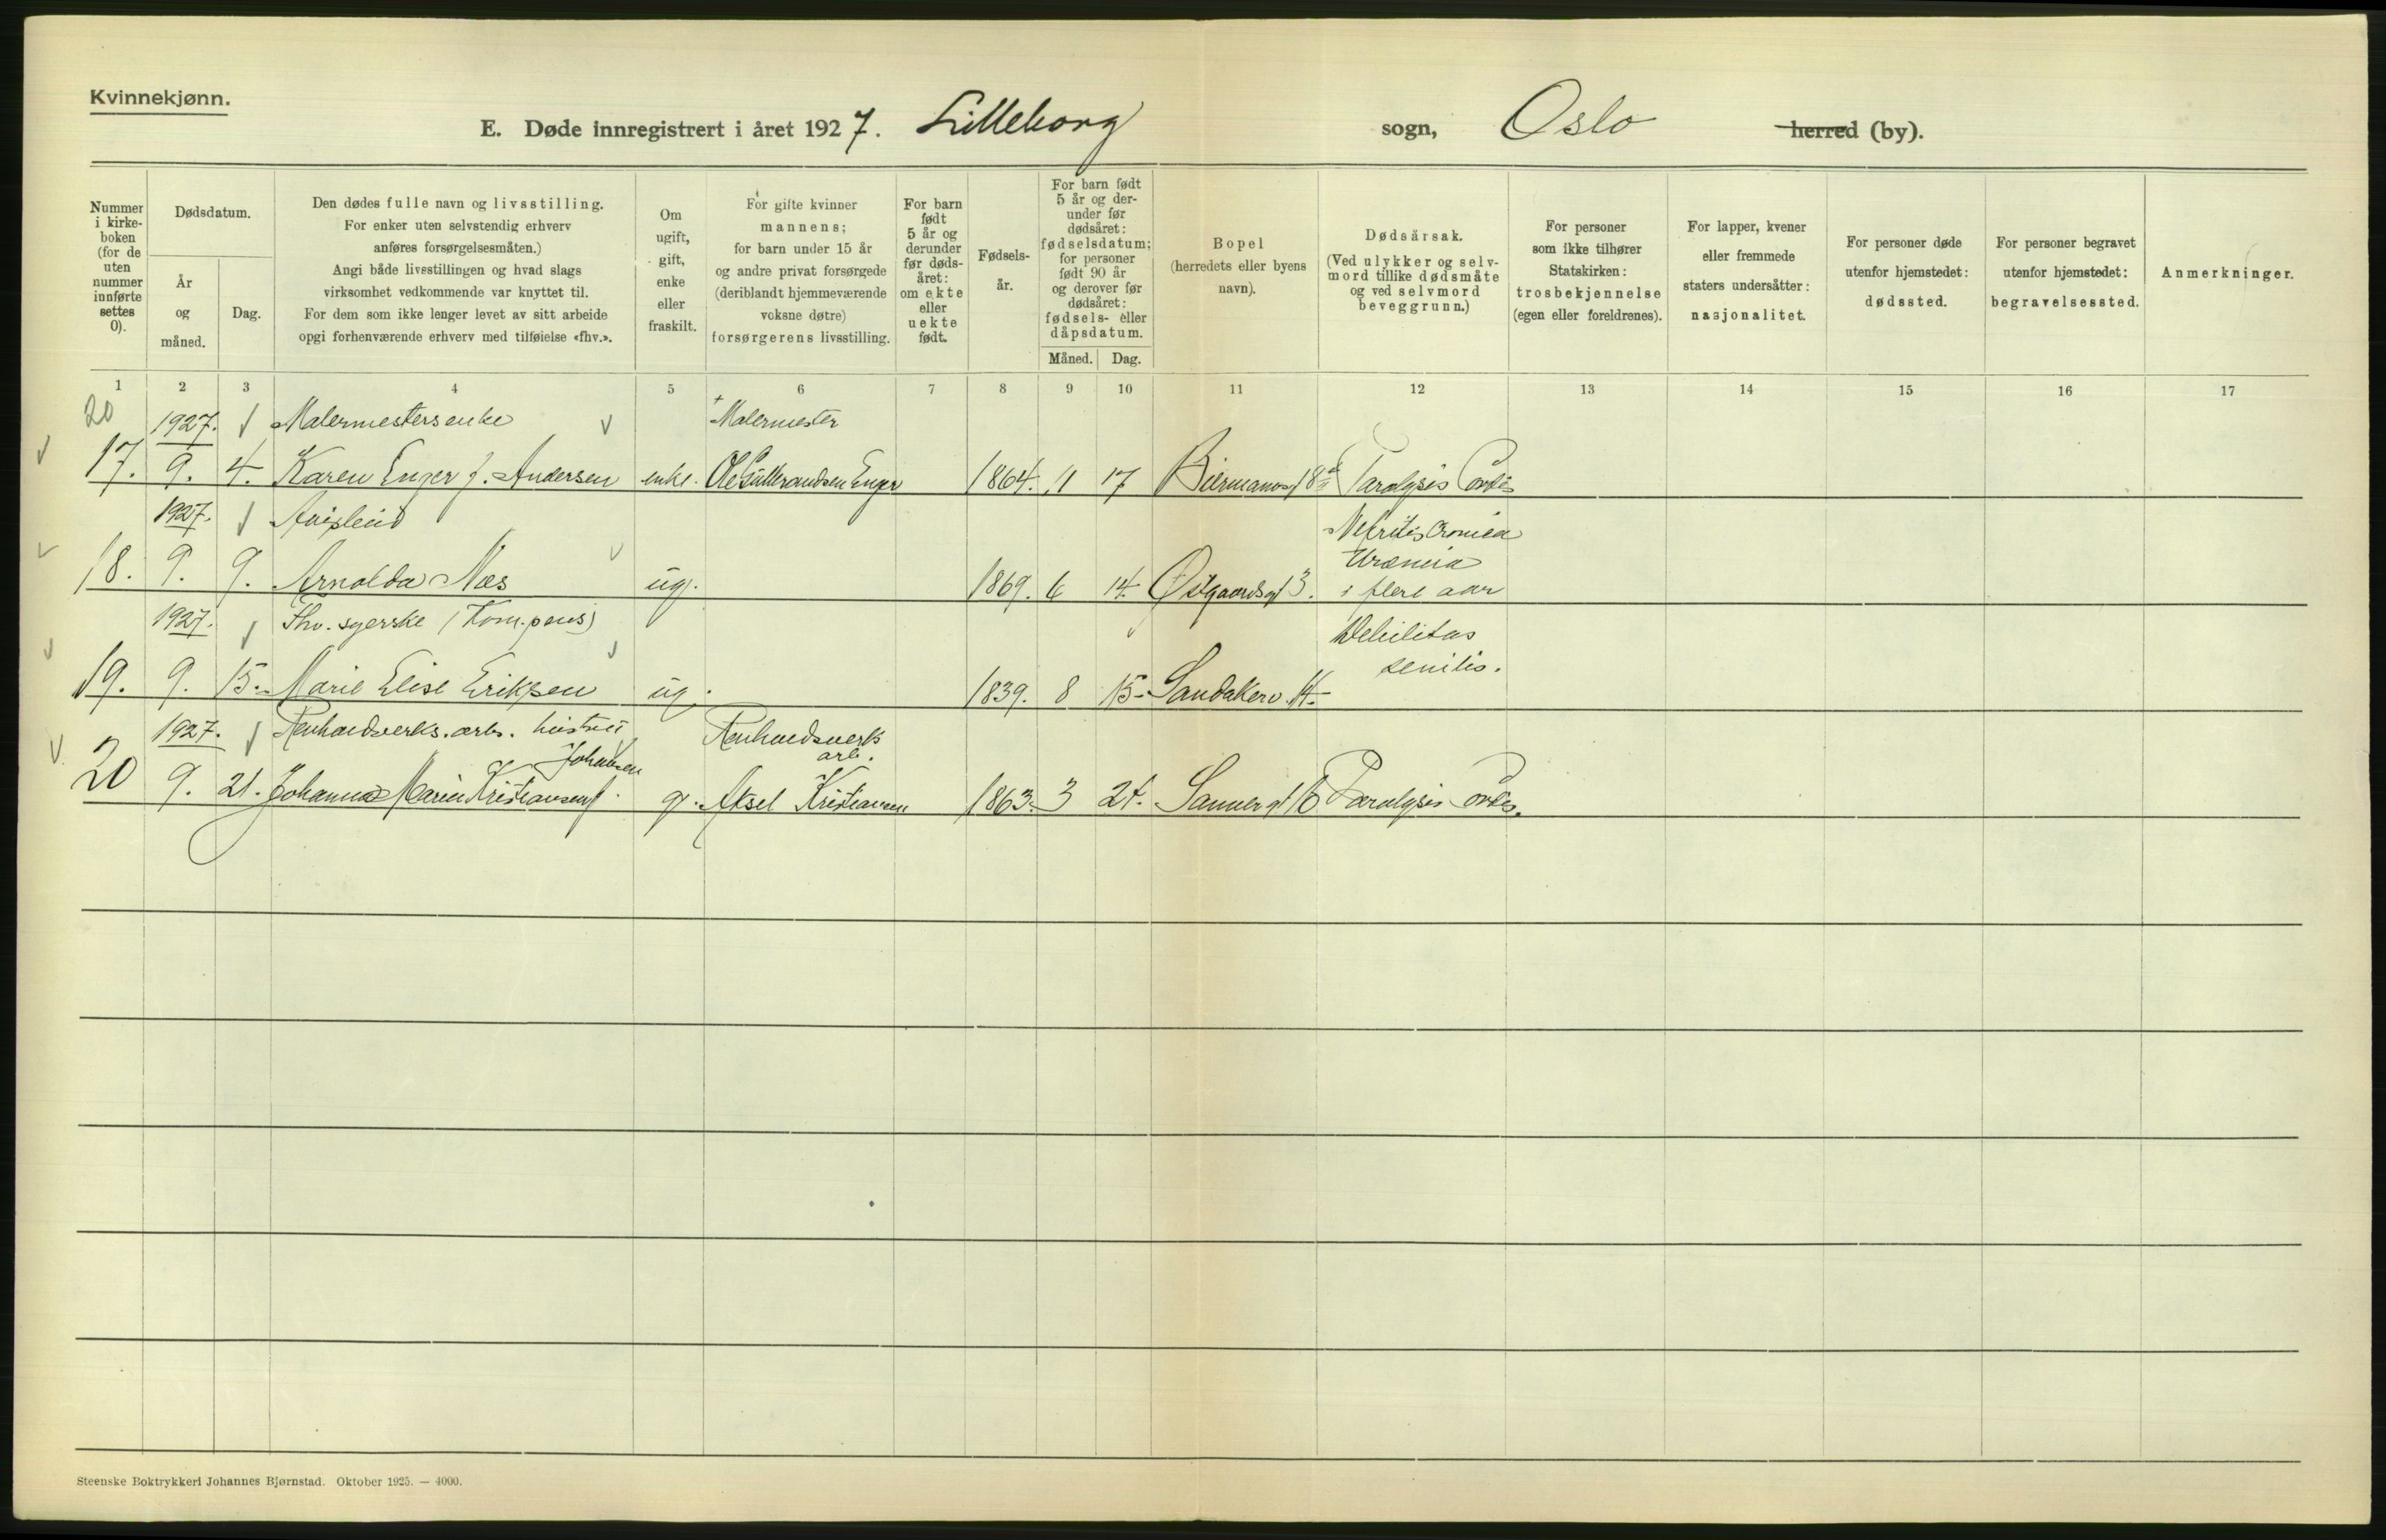 Kvinnekjønn.
E. Døde innregistrert i året 1927. Lilleborg sogn, Oslo herred (by).
Nummer
i kirke-
boken
(for de
uten
nummer
innførte
settes
0).
Dødsdatum.
År
og
måned.
Dag.
Den dødes fulle navn og livsstilling.
For enker uten selvstendig erhverv
anføres forsørgelsesmåten.)
Angi både livsstillingen og hvad slags
virksomhet vedkommende var knyttet til.
For dem som ikke lenger levet av sitt arbeide
opgi forhenværende erhverv med tilføielse «fhv.».
Om
ugift,
gift,
enke
eller
fraskilt.
For gifte kvinner
mannens;
for barn under 15 år
og andre privat forsørgede
(deriblandt hjemmeværende
voksne døtre)
forsørgerens livsstilling.
For barn
født
5 år og
derunder
før døds-
året:
om ekte
eller
uekte
født.
Fødsels-
år.
For barn født
5 år og der-
under før
dødsåret:
fødselsdatum;
for personer
født 90 år
og derover før
dødsåret:
fødsels- eller
dåpsdatum.
Måned. Dag.
Bopel
(herredets eller byens
navn).
Dødsårsak.
(Ved ulykker og selv-
mord tillike dødsmåte
og ved selvmord
beveggrunn.)
For personer
som ikke tilhører
Statskirken:
trosbekjennelse
(egen eller foreldrenes).
For lapper, kvener
eller fremmede
staters undersåtter:
nasjonalitet.
For personer døde
utenfor hjemstedet:
dødssted.
For personer begravet
utenfor hjemstedet:
begravelsessted.
Anmerkninger.
1 2 3 4 5 6 7 8 9 10 11 12 13 14 15 16 17
20
1927. Malermesters enke Malermester
17. 9. 4. Karen Enger f. Andersen enke. Ole Gulbrandsen Enger 1864. 11 17 Biermannsgt 18 Paralysis Cordis
1927.
Nefritis cronica
Uræmia
18. 9. 9. Arnolda Næs ug. 1869. 6 14. Østgaardsgt 3. i flere aar
1927. Fhv. syerske (Kom. pens)
Debilitas
senilis.
19. 9. 15. Marie Elise Eriksen ug. 1839. 8 15. Sandakerv. 14.
1927. Renholdsverks. arb. hustru Renholdsverks
arb.
Johansen
20 9. 21. Johanna Marie Kristiansen f. g. Aksel Kristiansen 1863. 3 21. Sannergt 16 Paralysis Cordis.
Steenske Boktrykkeri Johannes Bjørnstad. Oktober 1925. — 4000.